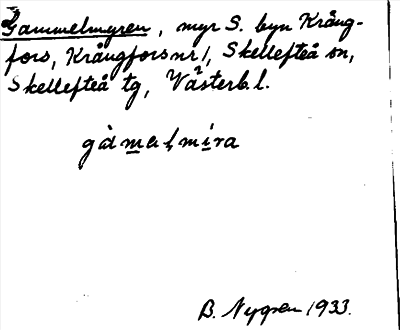 Gammelmyren, myr S. byn Krång-
fors, Krångfors nr 1, Skellefteå sn,
Skellefteå tg, Västerb. l.
gàmalmira
B. Nygren 1933.